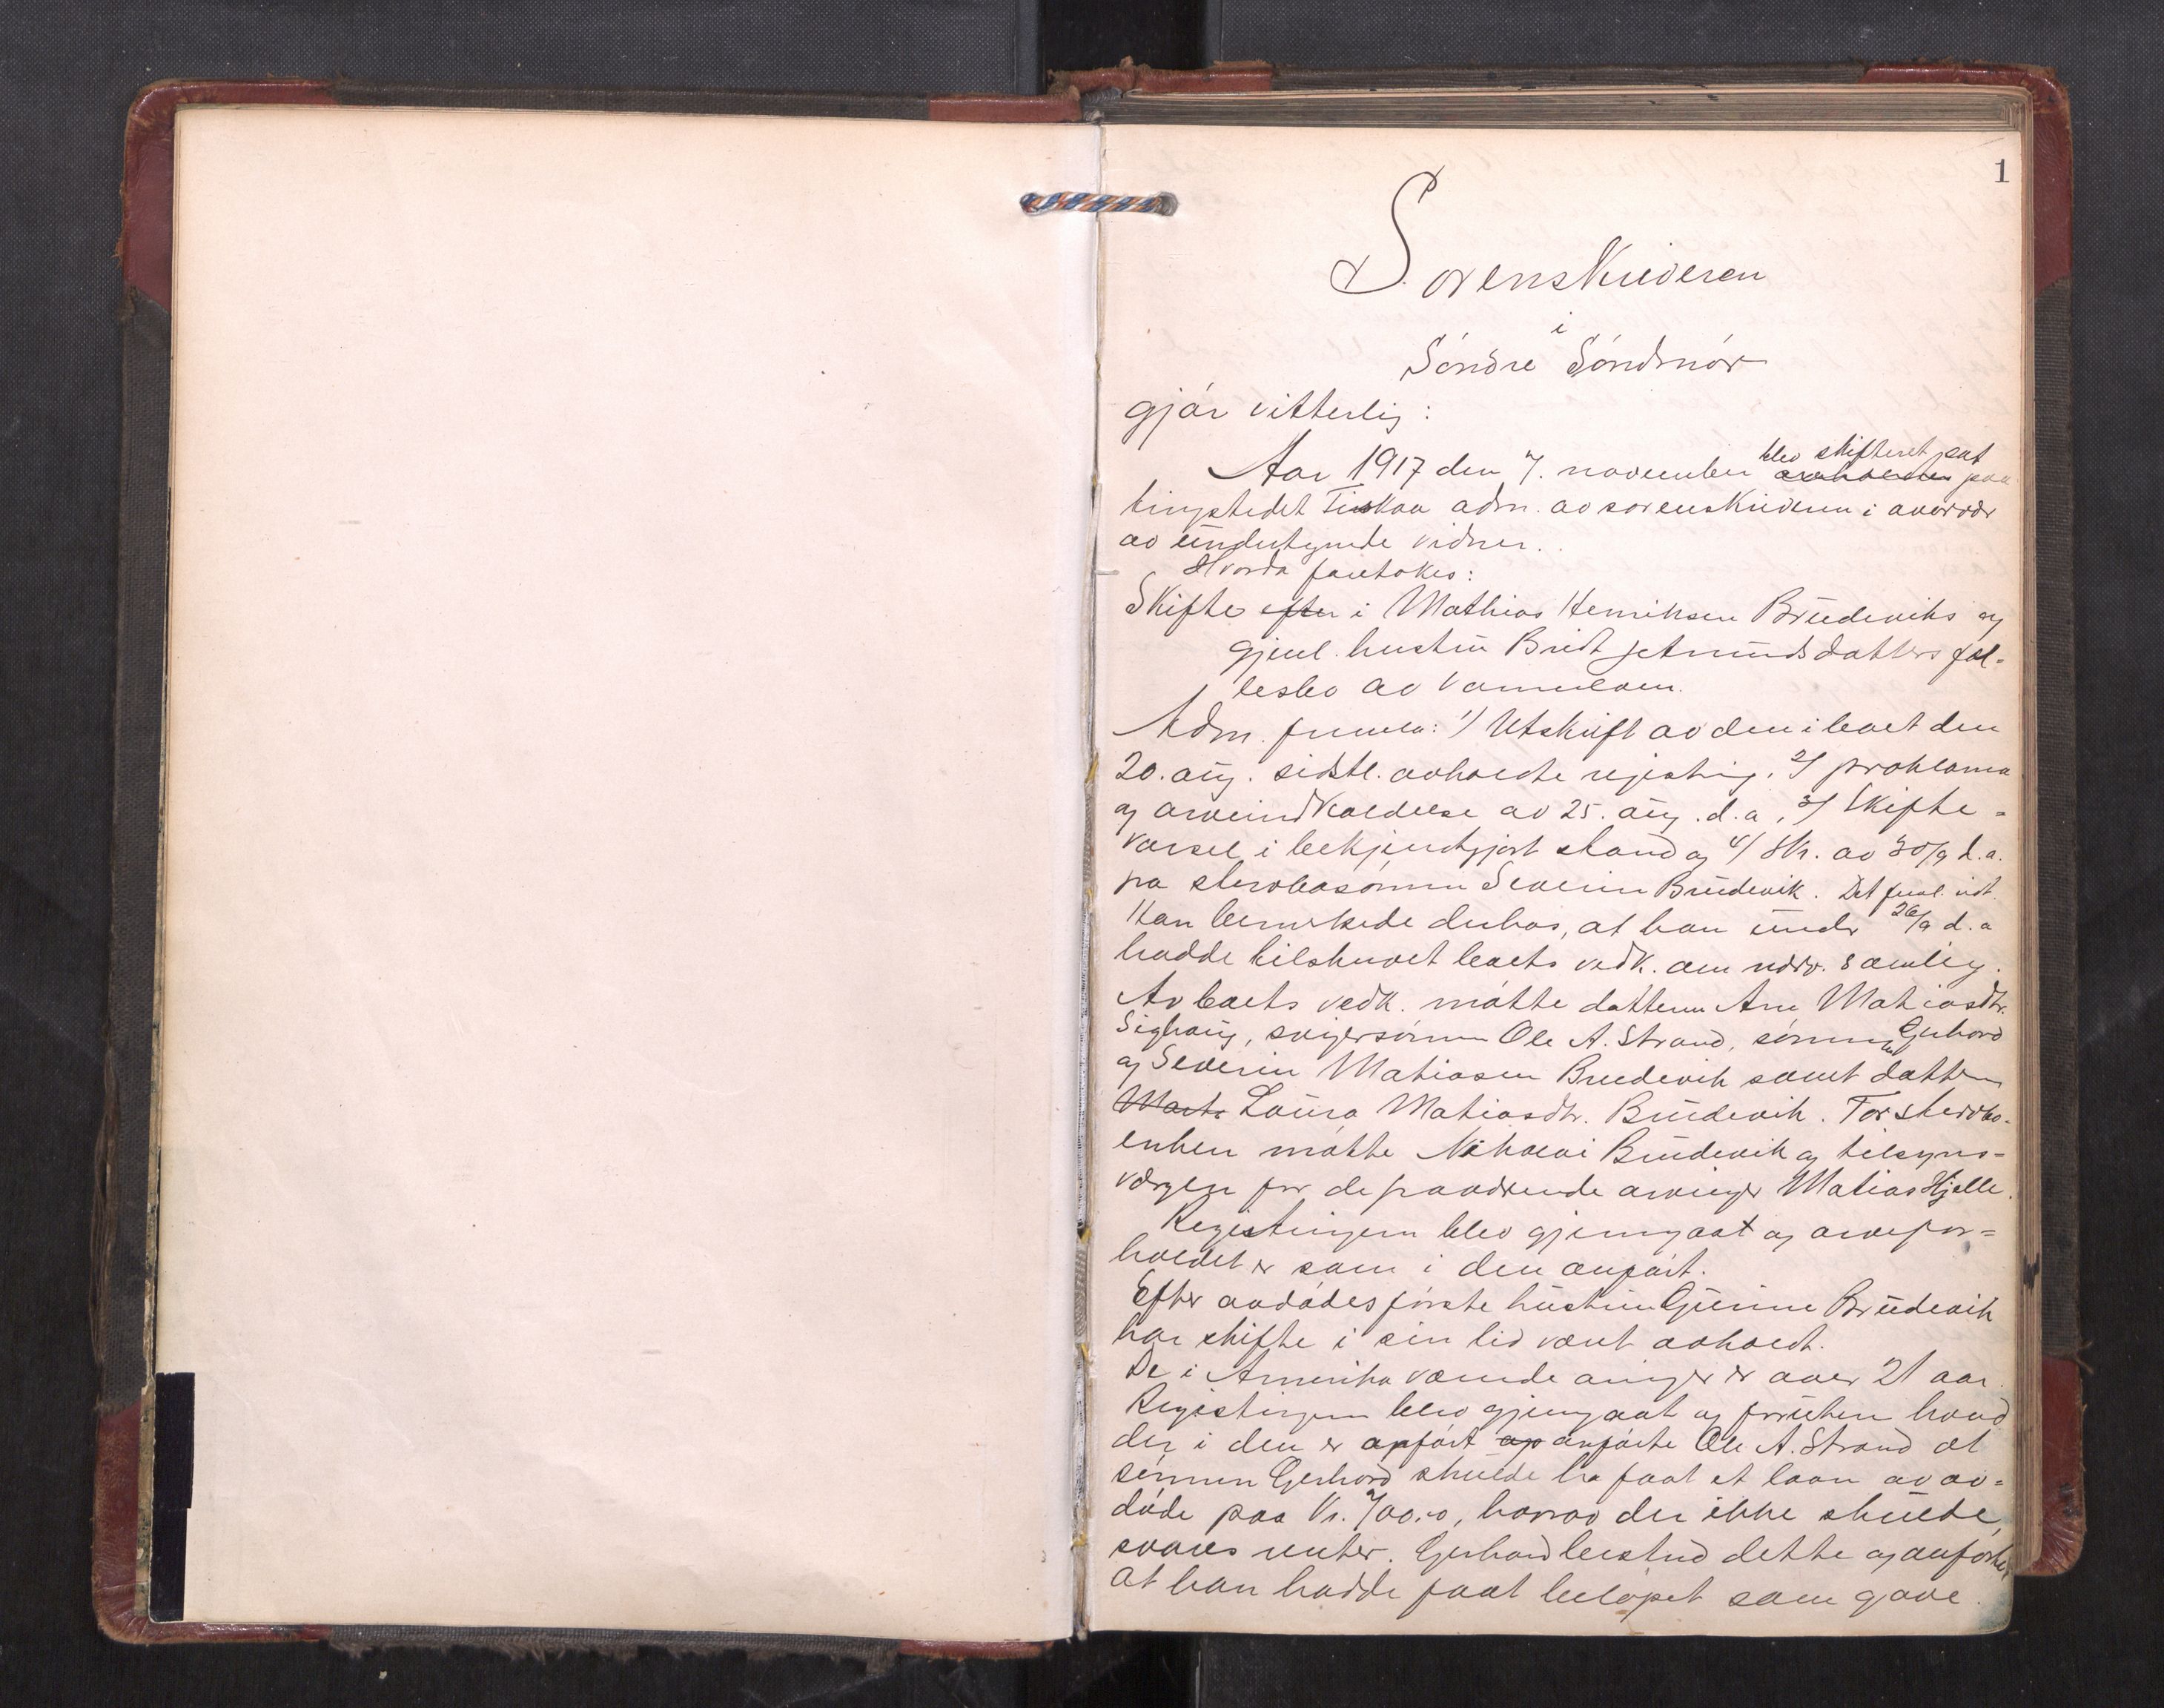 1
Sorenskriveren
i
Söndre Söndmör
gjör vitterlig:
Aar 1917 den 7. november blev skifteret sat avholdtes paa
tingstedet Fiskaa adm. av sorenskriveren i overvær
av undertegnede vidner.
Hvorda foretokes:
Skifte efter i Mathias Henriksen Brudeviks og
gjenl. hustru Brit Amundsdatters fæl-
lesbo av Vannelven.
Adm. fremla: 1/ Utskrift av den i boet den
20. aug. sidstl. avholdte registrering, 2/ proklama
og arveindkaldelse av 25. aug. d.a, 3/ Skifte-
varsel i bekjendtgjort stand og 4/ skr. av 30/9 d.a.
fra stervbosönnen Severin Brudevik. Det freml. vedt.
Han bemerkede derhos, at han under 26/9 d.a
hadde tilskrevet boets vedk. om nærv. samling.
Av boets vedk. mötte datteren Ane Matiasdtr.
Sighaug, svigersönnen Ole A. Strand, sönnerne Gerhard
og Severin Matiasen Brudevik samt datteren
Marta Laura Matiasdtr. Brudevik. For stervbo-
enken mötte Nikolai Brudevik og tilsyns-
værgen for de fraværende arvinger Matias Hjelle.
Registreringen blev gjenngaat og arvefor-
holdet er som i den anfört.
Efter avdödes förste hustru Gurine Brudevik
har skifte i sin tid vært avholdt.
De i Amerika værende arvinger er over 21 aar.
Registreringen blev gjenngaat og foruten hvad
der i den er anfört ap anförte Ole A. Strand at
sönnen Gerhard skulde ha faat et laan av av-
döde paa Kr. 700.00, hvorav der ikke skulde
svares renter. Gerhard bestred dette og anförte,
at han hadde faat belöpet som gave.